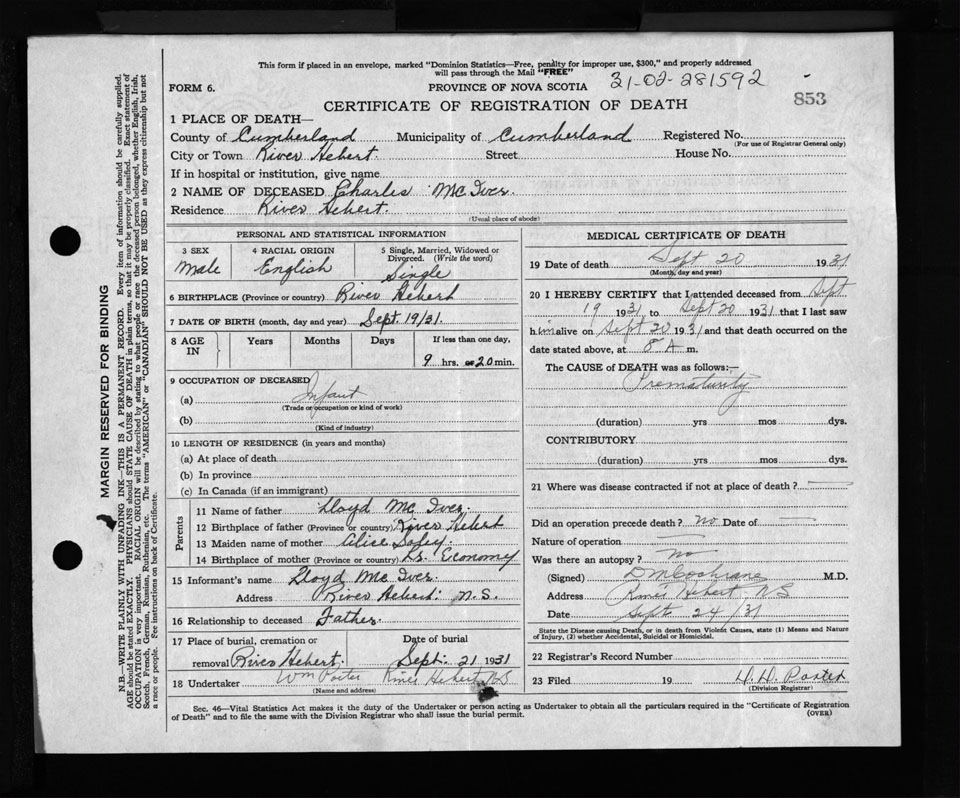 This form if placed in an envelope, marked "Dominion Statistics—Free, penalty for improper use, $300," and properly addressed
will pass through the Mail "FREE"
31-02-281592
FORM 6.
PROVINCE OF NOVA SCOTIA
853
CERTIFICATE OF REGISTRATION OF DEATH
1 PLACE OF DEATH—
County of Cumberland Municipality of Cumberland Registered No.
(For use of Registrar General only)
City or Town River Hebert. Street House No.
If in hospital or institution, give name
2 NAME OF DECEASED Charles McIver.
Residence River Hebert.
(Usual place of abode)
PERSONAL AND STATISTICAL INFORMATION
3 SEX 4 RACIAL ORIGIN 5 Single, Married, Widowed or
Divorced. (Write the word)
Male English Single
6 BIRTHPLACE (Province or country) River Hebert
7 DATE OF BIRTH (month, day and year) Sept. 19/31.
8 AGE IN Years Months Days If less than one day,
9 hrs. or 20 min.
9 OCCUPATION OF DECEASED
(a) Infant
(Trade or occupation or kind of work)
(b)
(Kind of industry)
10 LENGTH OF RESIDENCE (in years and months)
(a) At place of death
(b) In province
(c) In Canada (if an immigrant)
Parents
11 Name of father Lloyd McIver.
12 Birthplace of father (Province or country) River Hebert
13 Maiden name of mother Alice
14 Birthplace of mother (Province or country) Economy
15 Informant's name Lloyd McIver.
Address River Hebert. N.S.
16 Relationship to deceased Father.
17 Place of burial, cremation or Date of burial
removal River Hebert. Sept. 21 1931
18 Undertaker Wm Porter River Hebert NS
(Name and address)
MEDICAL CERTIFICATE OF DEATH
19 Date of death Sept 20 1931
(Month, day and year)
20 I HEREBY CERTIFY that I attended deceased from Sept
19 1931 to Sept 20 1931 that I last saw
him alive on Sept 20 1931 and that death occurred on the
date stated above, at 8 A m.
The CAUSE of DEATH was as follows:—
Prematurity
(duration) yrs mos dys.
CONTRIBUTORY
(duration) yrs mos dys.
21 Where was disease contracted if not at place of death? —
Did an operation precede death? No Date of —
Nature of operation —
Was there an autopsy? No
(Signed) D M Cochrane M.D.
Address River Hebert, N S
Date Sept 24/31
State the Disease causing Death, or in death from Violent Causes, state (1) Means and Nature
of Injury, (2) whether Accidental, Suicidal or Homicidal.
22 Registrar's Record Number
23 Filed 19 Porter
(Division Registrar)
Sec. 46—Vital Statistics Act makes it the duty of the Undertaker or person acting as Undertaker to obtain all the particulars required in the "Certificate of Registration
of Death" and to file the same with the Division Registrar who shall issue the burial permit.
(OVER)
MARGIN RESERVED FOR BINDING
N.B.—WRITE PLAINLY WITH UNFADING INK—THIS IS A PERMANENT RECORD. Every item of information should be carefully supplied.
AGE should be stated EXACTLY. PHYSICIANS should STATE CAUSE OF DEATH in plain terms, so that it may be properly classified. Exact statement of
OCCUPATION is very important. RACIAL ORIGIN will be described by stating to what people or race the deceased person belonged, whether English, Irish,
Scotch, French, German, Russian, Ruthenian, etc. The terms "AMERICAN" or "CANADIAN" SHOULD NOT BE USED as they express citizenship but not
a race or people. Fee instructions on back of Certificate.